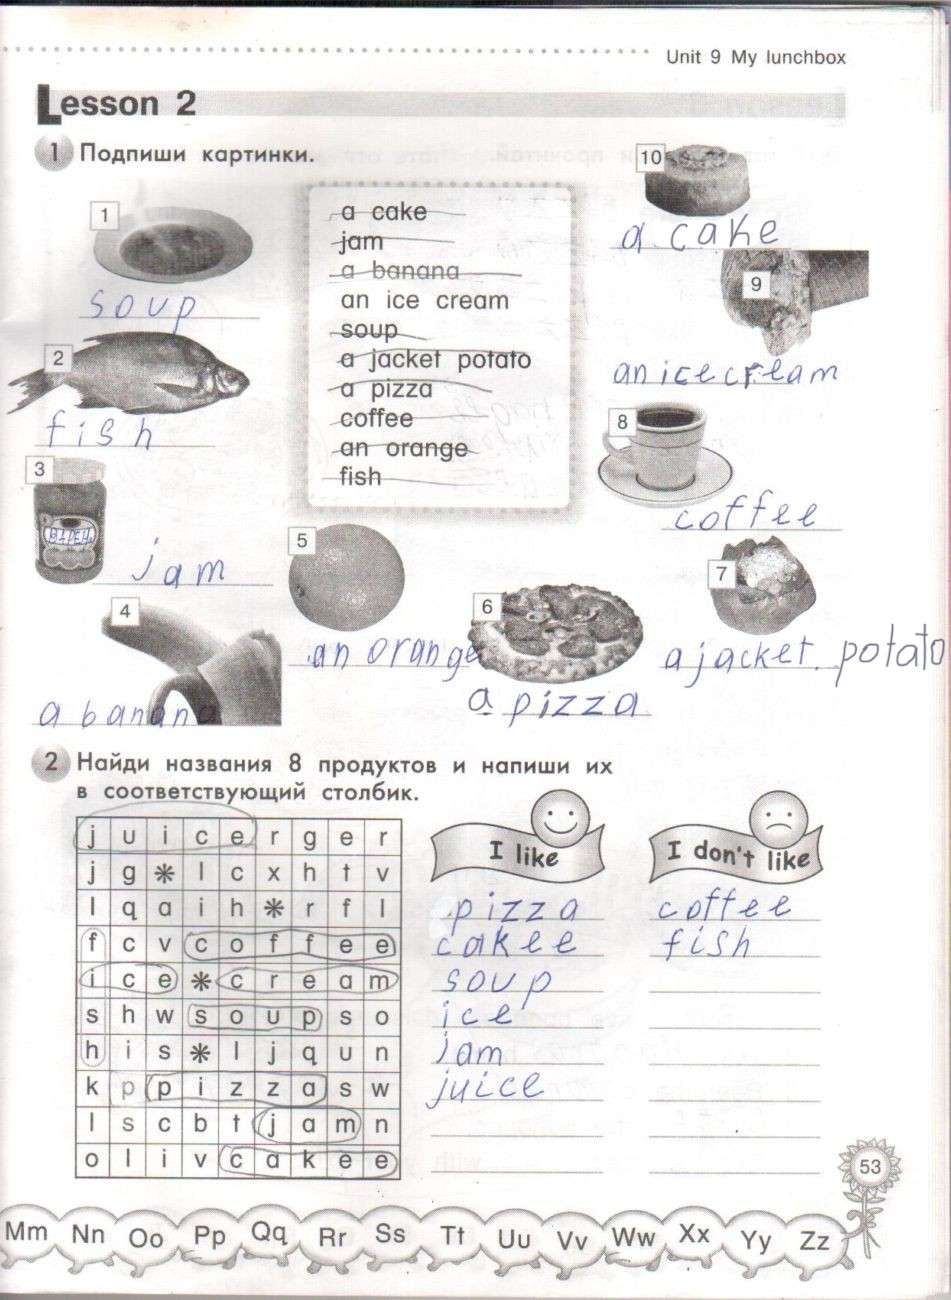 Unit 9 My lunchbox
Lesson 2
1 Подпиши картинки.
1
soup
2
fish
3
jam
4
a banana
a cake
jam
a banana
an ice cream
soup
a jacket potato
a pizza
coffee
an orange
fish
10
a cake
9
an ice cream
8
coffee
7
a jacket. potato
5
an orange
6
a pizza
2 Найди названия 8 продуктов и напиши их
в соответствующий столбик.
j u i c e r g e r
j g * l c x h t v
l q a i h * r f l
f c v c o f f e e
i c e * c r e a m
s h w s o u p s o
h i s * l j q u n
k p p i z z a s w
l s c b t j a m n
o l i v c a k e e
I like
pizza
cakee
soup
ice
jam
juice
I don't like
coffee
fish
53
Mm Nn Oo Pp Qq Rr Ss Tt Uu Vv Ww Xx Yy Zz